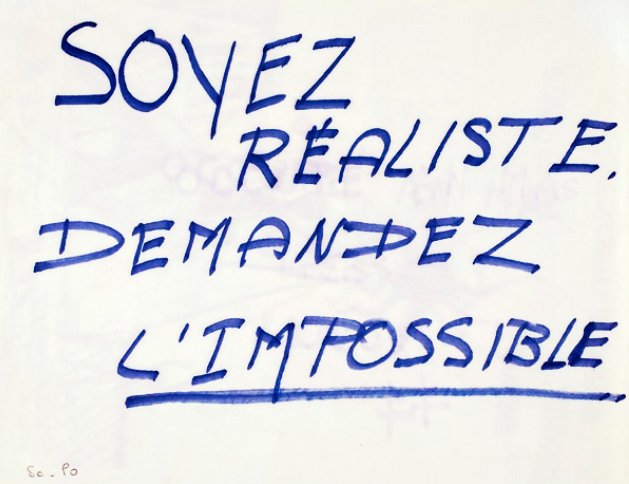 SOYEZ
RÉALISTE.
DEMANDEZ
L'IMPOSSIBLE
Sc. Po